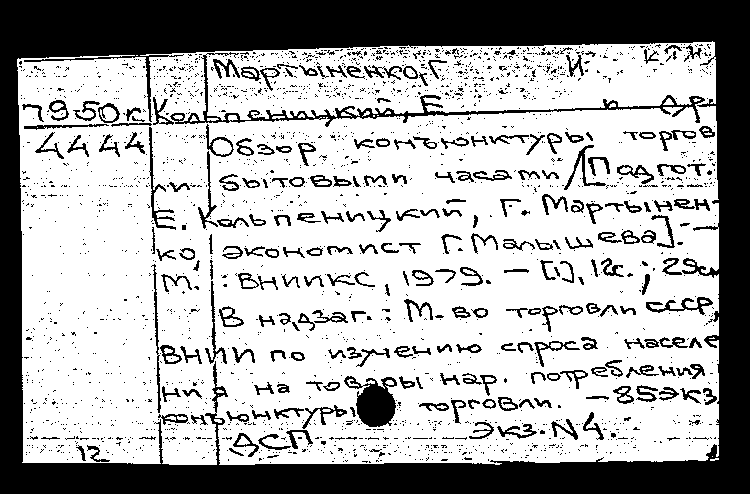 Мартыненко, Г И. К.Т.Н.
7950к Кольпеницкий, Е и др.
4444 Обзор конъюнктуры торгов
ли бытовыми часами / [Подгот.
Е. Кольпеницкий, Г. Мартынен-
ко, экономист Г. Малышева]. —
М. : ВНИИКС, 1979. — [1], 12с. ; 29см
В надзаг. : М-во торговли СССР,
ВНИИ по изучению спроса населе
ния на товары нар. потребления
конъюнктуры торговли. — 85экз
ДСП. Экз. N4.
12